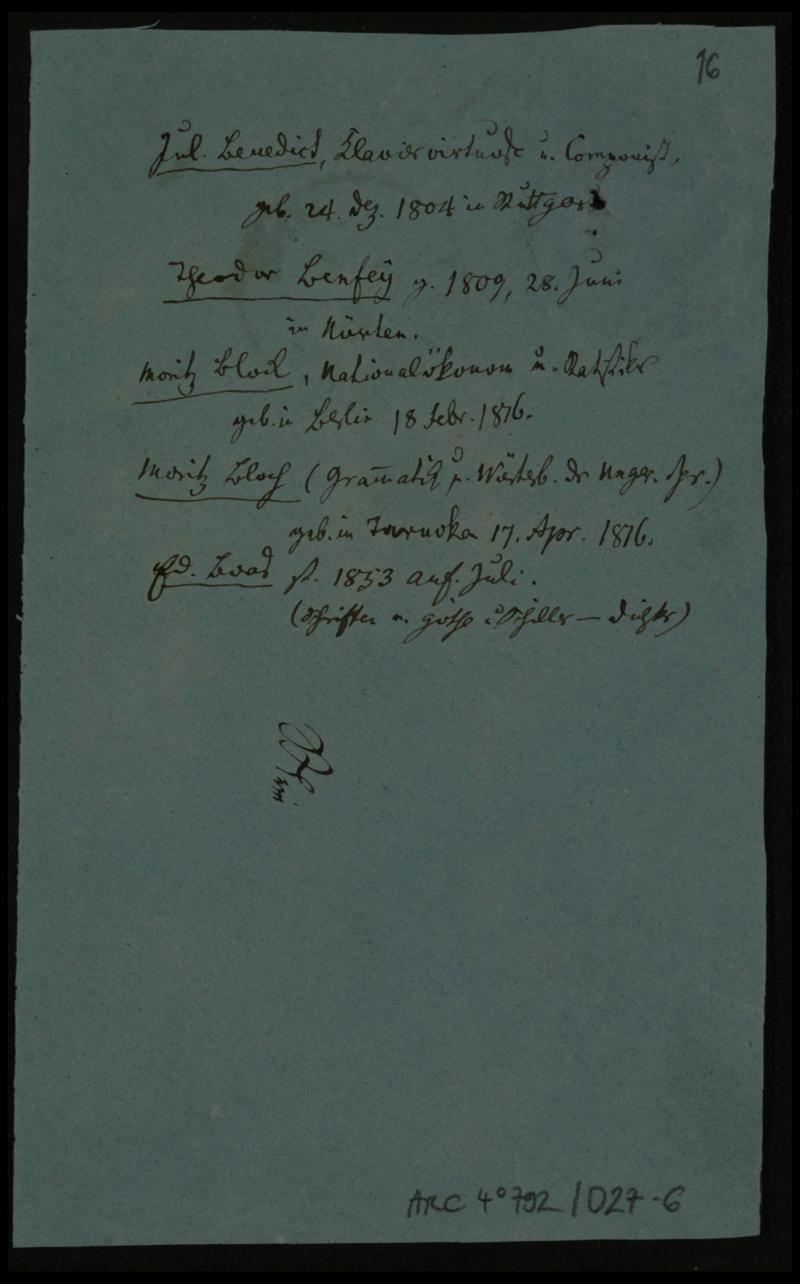 16
Jul. Benedict, Klaviervirtuose u. Componist,
geb. 24. Dez. 1804 in Stuttgart
Theodor Benfey g. 1809, 28. Juni
in Nörten.
Moritz Block, Nationalökonom u. Statistiker
geb. in Berlin 18 Febr. 1816.
Moritz Bloch (Grammatik u. Wörterb. der Ungar. Spr.)
geb. in Ternoka 17. Apr. 1816.
Ed. Boas st. 1853 anf. Juli.
(Schriften u. Göthe u Schiller — Dichter)
ARC 4° 792 / D27-6